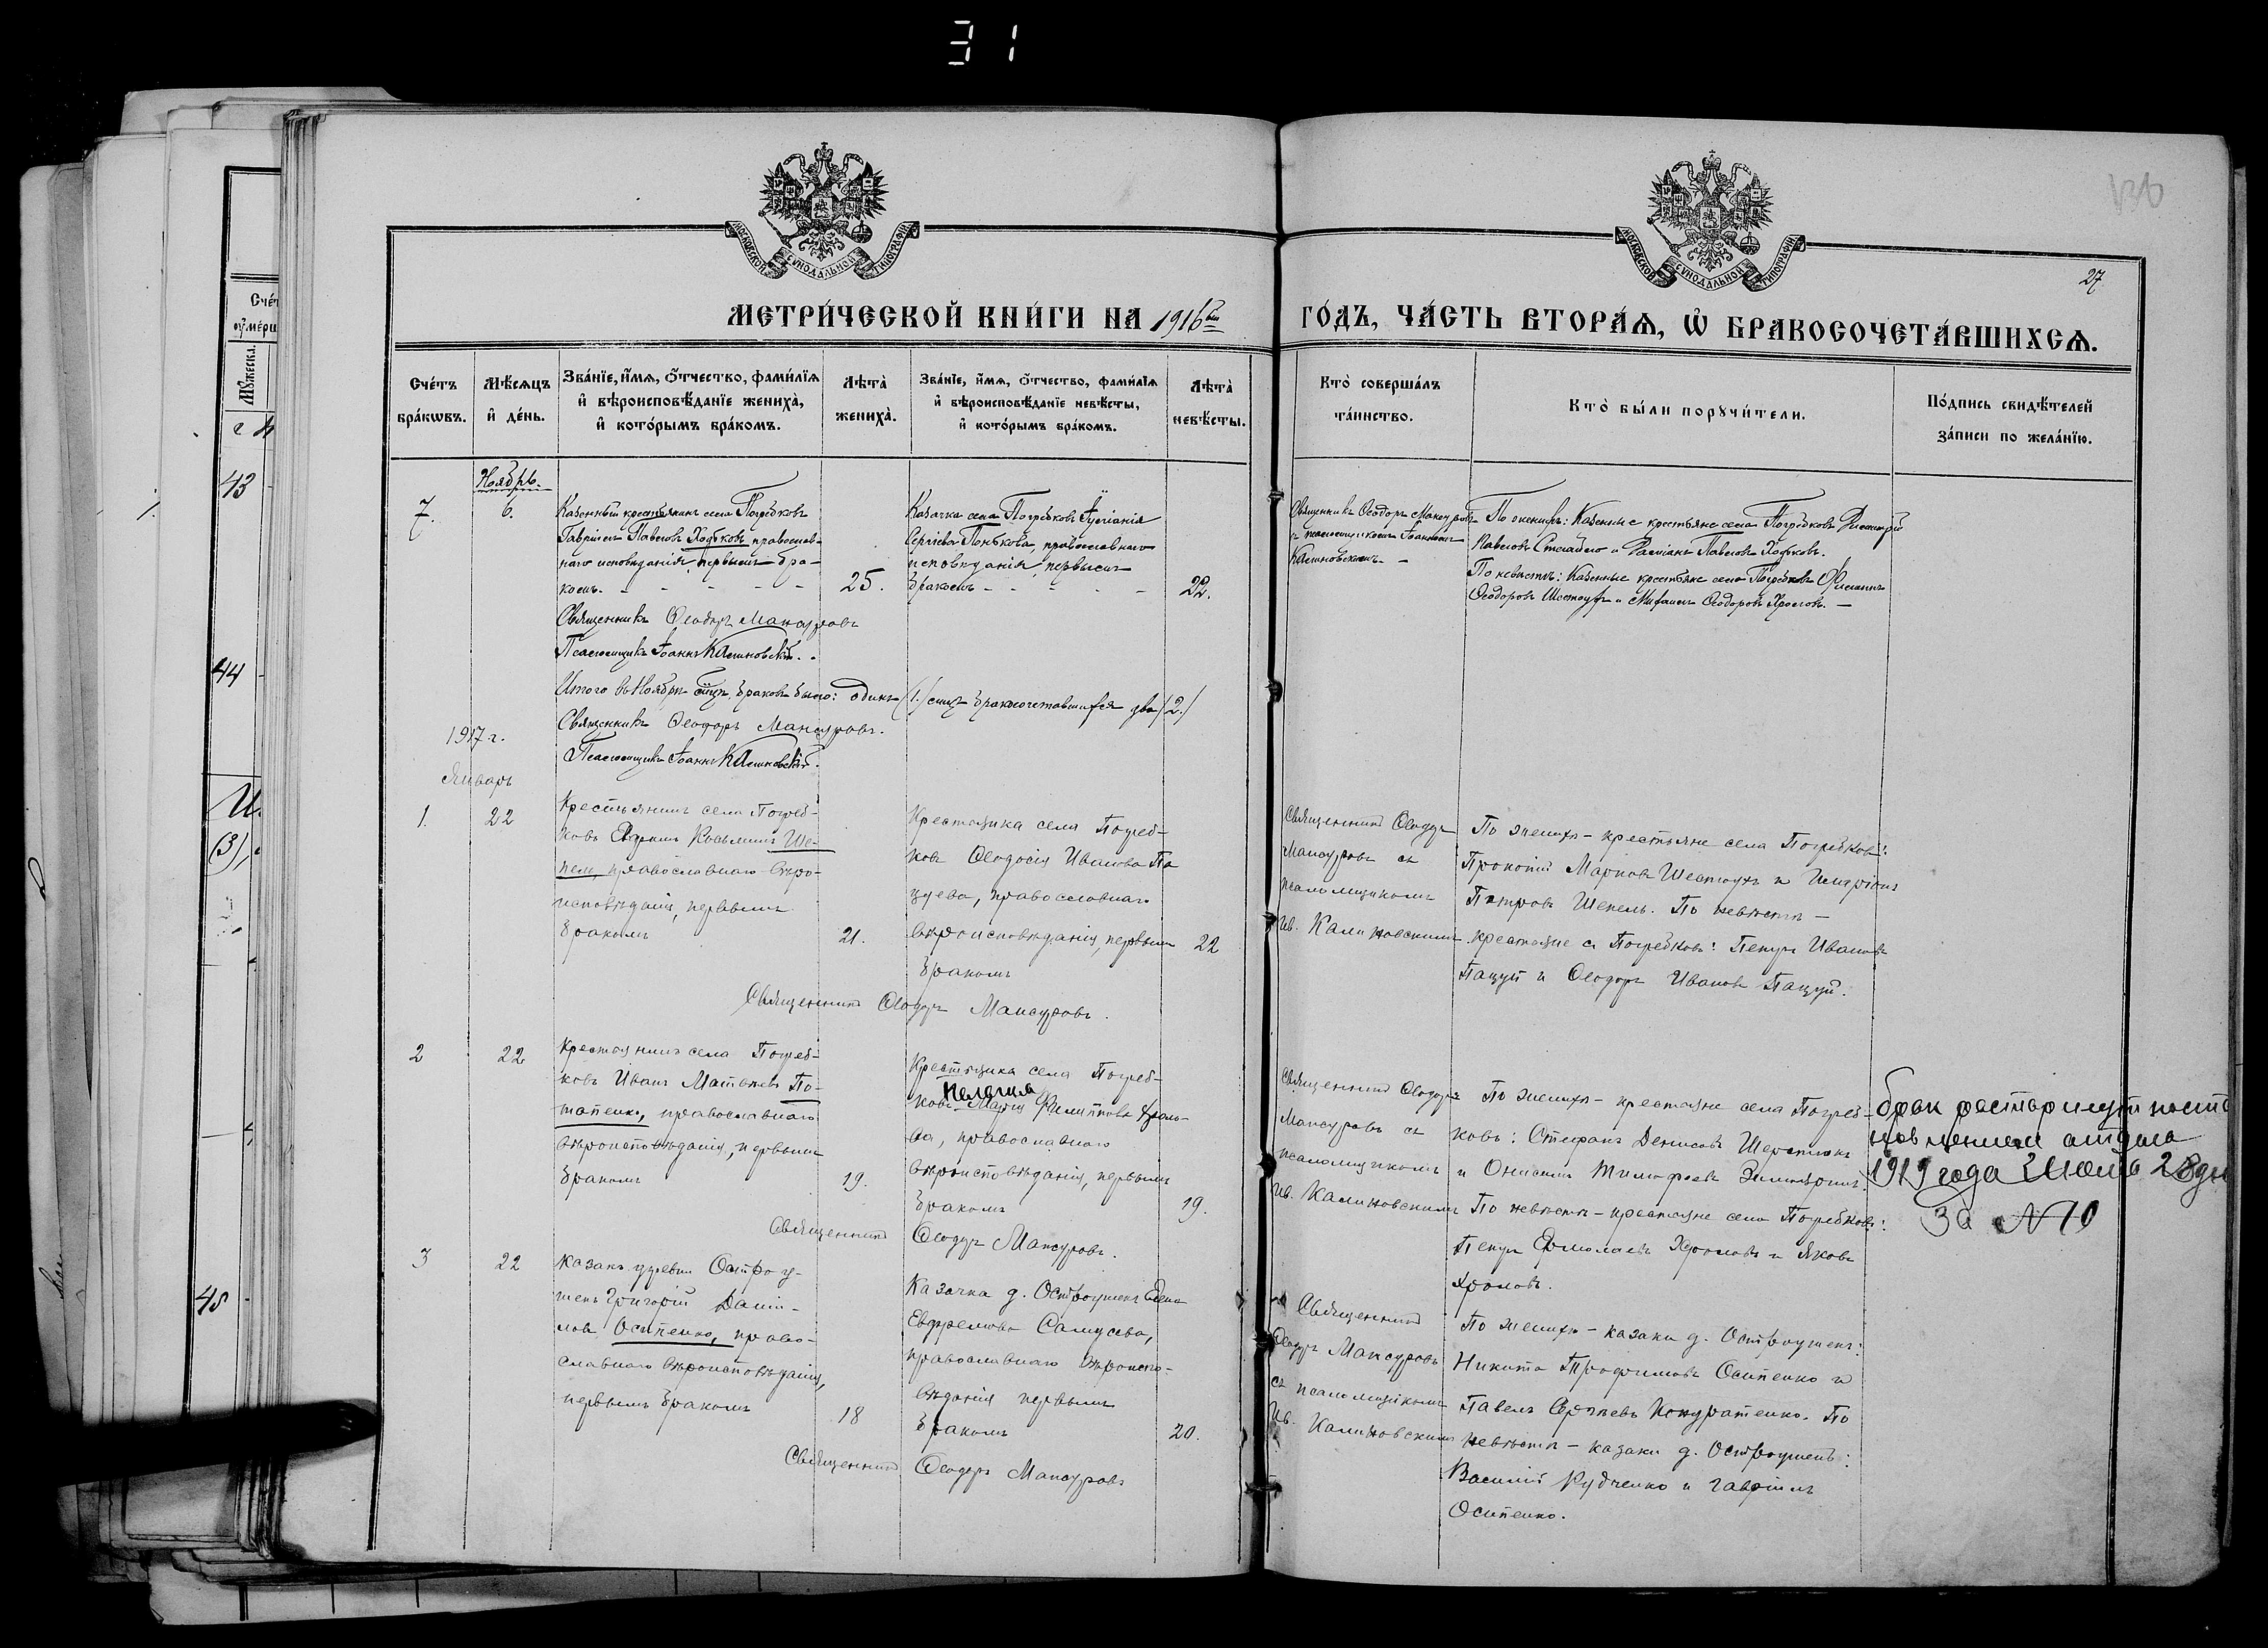 31
136
27
МОСКОВСКОЙ СѴНОДАЛЬНОЙ ТИПОГРАФІИ
МОСКОВСКОЙ СѴНОДАЛЬНОЙ ТИПОГРАФІИ
МЕТРИ́ЧЕСКОЙ КНИ́ГИ НА 1916ый ГО́ДЪ, ЧА́СТЬ ВТОРА́Я, Ѡ҆ БРАКОСОЧЕТА́ВШИХСЯ.
Сче́тъ бра́кѡвъ.
Мѣ́сяцъ и҆ де́нь.
Зва́нїе, и҆́мя, ѻ҆́тчество, фами́лїя
и҆ вѣроисповѣ́данїе жениха̀,
и҆ кото́рымъ бра́комъ.
Лѣта̀ жениха̀.
Зва́нїе, и҆́мя, ѻ҆́тчество, фами́лїя
и҆ вѣроисповѣ́данїе невѣ́сты,
и҆ кото́рымъ бра́комъ.
Лѣта̀ невѣ́сты.
Кто̀ соверша́лъ та́инство.
Кто̀ бы́ли порꙋчи́тели.
По́дпись свидѣ́телей
за́писи по жела́нїю.
Ноябрь.
7.
6.
Казенный крестьянинъ села Погребковъ
Гавріилъ Павловъ православ-
наго исповѣданія, первымъ бра-
комъ.
25.
Казачка села Погребковъ Іуліанія
Сергіева православнаго
исповѣданія, первымъ
бракомъ
22.
Священникъ Ѳеодоръ Мансуровъ
съ псаломщикомъ Іоанномъ
Калиновскимъ.
По женихѣ: Казенные крестьяне села Погребковъ Димитрій
Павловъ и Даміанъ Павловъ
По невѣстѣ: Казенные крестьяне села Погребковъ
Ѳеодоровъ Шестоухъ и Михаилъ Ѳеодоровъ Хроловъ.
Священникъ Ѳеодоръ Мансуровъ
Псаломщикъ Іоаннъ Калиновскій.
Итого въ Ноябрѣ мѣц. браковъ было: одинъ (1.) симъ бракосочетавшихся два (2.)
Священникъ Ѳеодоръ Мансуровъ.
Псаломщикъ Іоаннъ Калиновскій.
1917 г.
Январь
1.
22
Крестьянинъ села Погреб-
ковъ Козьминъ Ше-
пель, православнаго вѣро-
исповѣданія, первымъ
бракомъ
21.
Крестьянка села Погреб-
ковъ Ѳеодосія Иванова Па
цуева, православнаго
вѣроисповѣданія, первымъ
бракомъ
22
Священникъ Ѳеодоръ
Мансуровъ съ
псаломщикомъ
Ив. Калиновскимъ
По женихѣ - крестьяне села Погребковъ:
Прокопій Марковъ Шестоухъ и Иларіонъ
Петровъ Шепель. По невѣстѣ -
крестьяне с. Погребковъ: Петръ Ивановъ
Пацуй и Ѳеодоръ Ивановъ Пацуй.
Священникъ Ѳеодоръ Мансуровъ.
2
22
Крестьянинъ села Погреб-
ковъ Иванъ Матвѣевъ По-
тапенко, православнаго
вѣроисповѣданія, первымъ
бракомъ
19.
Крестьянка села Погреб-
Пелагия
ковъ Марія Филиппова Хроло-
ва, православнаго
вѣроисповѣданія, первымъ
бракомъ
19.
Священникъ Ѳеодоръ
Мансуровъ съ
псаломщикомъ
Ив. Калиновскимъ
По женихѣ - крестьяне села Погреб-
ковъ: Стефанъ Денисовъ
и Онисимъ Тимофеевъ
По невѣстѣ - крестьяне села Погребковъ:
Петръ Ермолаевъ Хроловъ и Яковъ
Хроловъ.
брак расторгнут поста
новлением отдела
1919 года Июля 28 дн
За № 10
Священникъ Ѳеодоръ Мансуровъ.
3
22
Казакъ деревни Остроу-
шекъ Григорій Даніи-
ловъ Осипенко, право-
славнаго вѣроисповѣданія,
первымъ бракомъ
18
Казачка д. Остроушекъ Елена
Евфремова Самусева,
православнаго вѣроиспо-
вѣданія первымъ
бракомъ
20.
Священникъ
Ѳеодоръ Мансуровъ
съ псаломщикомъ
Ив. Калиновскимъ
По женихѣ - казаки д. Остроушекъ:
Никита Трофимовъ Осипенко и
Павелъ Сергѣевъ Кондратенко. По
невѣстѣ - казаки д. Остроушекъ:
Василій Рудченко и Гавріилъ
Осипенко.
Священникъ Ѳеодоръ Мансуровъ
43
44
45